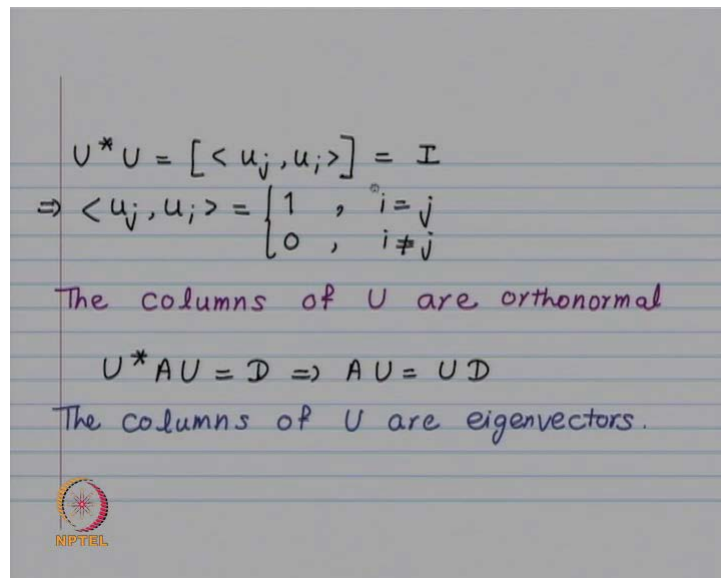 U*U = [<uj, ui>] = I
⇒ <uj, ui> = { 1 , i = j
0 , i ≠ j
The columns of U are orthonormal
U*AU = D ⇒ AU = UD
The columns of U are eigenvectors.
NPTEL